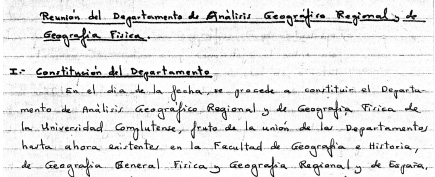 Reunión del Departamento de Análisis Geográfico Regional y de
Geografía Física.
I.- Constitución del Departamento
En el día de la fecha, se procede a constituir el Departa-
mento de Análisis Geográfico Regional y de Geografía Física de
la Universidad Complutense, fruto de la unión de los Departamentos
hasta ahora existentes en la Facultad de Geografía e Historia,
de Geografía General Física y Geografía Regional y de España,